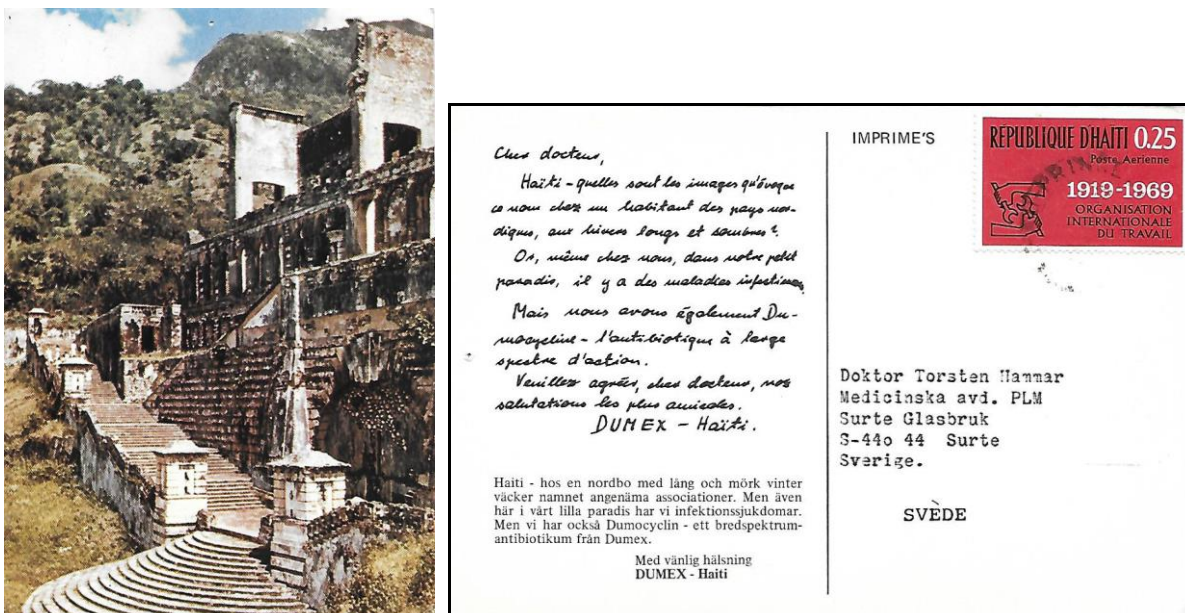 Cher docteur,
Haïti - quelles sont les images qu'évoque
ce nom chez un habitant des pays nor-
diques, aux hivers longs et sombres?
Or, même chez nous, dans notre petit
paradis, il y a des maladies infectieuses.
Mais nous avons également Du-
mocycline - l'antibiotique à large
spectre d'action.
Veuillez agréer, cher docteur, nos
salutations les plus amicales.
DUMEX - Haïti.
Haiti - hos en nordbo med lång och mörk vinter
väcker namnet angenäma associationer. Men även
här i vårt lilla paradis har vi infektionssjukdomar.
Men vi har också Dumocyclin - ett bredspektrum-
antibiotikum från Dumex.
Med vänlig hälsning
DUMEX - Haiti
IMPRIME'S
REPUBLIQUE D'HAÏTI 0.25
Poste Aerienne
1919-1969
ORGANISATION
INTERNATIONALE
DU TRAVAIL
Doktor Torsten Hammar
Medicinska avd. PLM
Surte Glasbruk
S-44o 44 Surte
Sverige.
SVÈDE